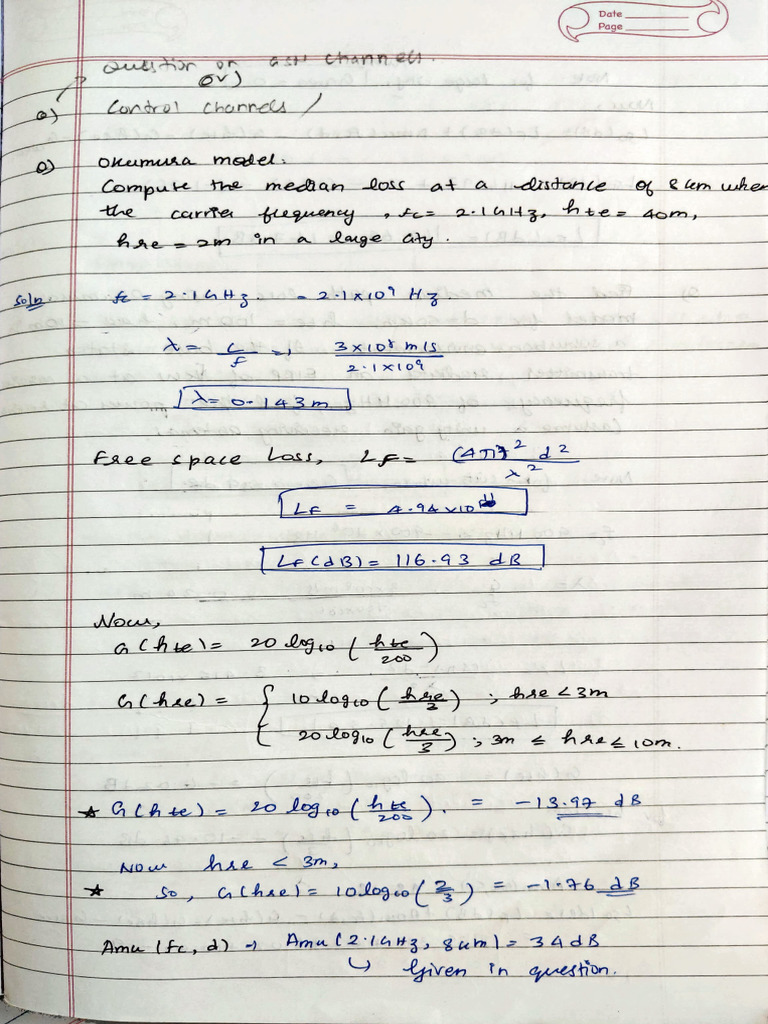 Date
Page
Question on GSM channels.
(OR)
Q) Control channels /
Q) Okumura model.
Compute the median loss at a distance of 8 km when
the carrier frequency, fc = 2.1 GHz, hte = 40m,
hre = 2m in a large city.
Soln fc = 2.1 GHz = 2.1 x 10⁹ Hz
λ = c/f => 3 x 10⁸ m/s / 2.1 x 10⁹
λ = 0.143 m
Free space Loss, LF = (4π)² d² / λ²
LF = 4.94 x 10
LF (dB) = 116.93 dB
Now,
G(hte) = 20 log10 (hte/200)
G(hre) = { 10 log10 (hre/3) ; hre < 3m
20 log10 (hre/3) ; 3m ≤ hre ≤ 10m.
★ G(hte) = 20 log10 (hte/200). = -13.97 dB
Now hre < 3m,
★ So, G(hre) = 10 log10 (2/3) = -1.76 dB
Amu (fc, d) → Amu (2.1 GHz, 8 km) = 34 dB
↳ Given in question.